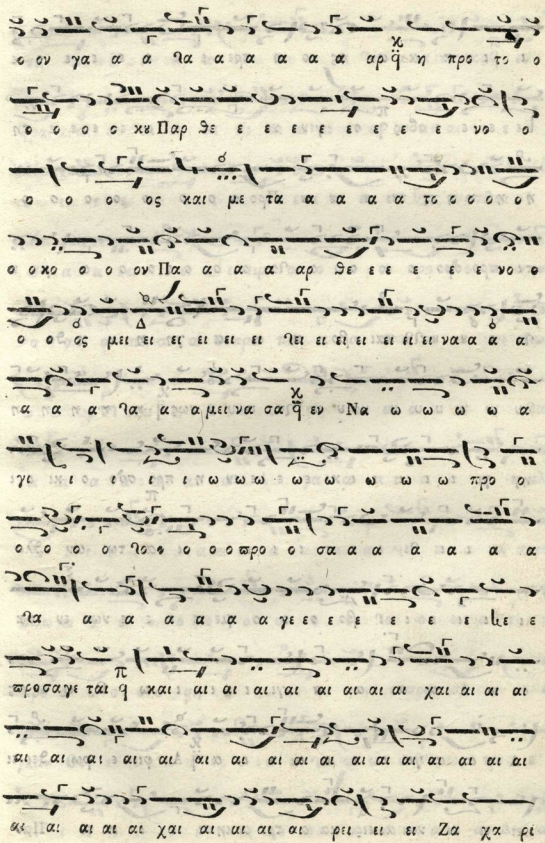 ο ον γα α α λα α α α α α αρ η προ το ο
ο ο ο ο κȣ Παρ θε ε ε ε ε ε ε ε ε νο ο
ο ο ο ο ος και με τα α α α α το ο ο ο ο
ο ο κο ο ο ον Πα α α α α αρ θε ε ε ε ε ε νο ο
ο ο ος μει ει ει ει ει ει λει ει ει ει ει ει ει να α α α
α α α λα α α μει να σα εν Να ω ω ω ω α
γι ι ι ι ι ι ι ω ω ω ω ω ω ω ω προ
ο ο ο ο λο ο ο ο ο προ ο σα α α α α α α
λα α α α α α α γε ε ε ε ε ε ε ε ε
προσαγε ται και αι αι αι αι αι αι αι αι χαι αι αι αι
αι αι αι αι αι αι αι αι αι αι αι αι αι αι αι αι αι
αι αι αι αι αι χαι αι αι αι αι ρει ει ει Ζα χα ρι